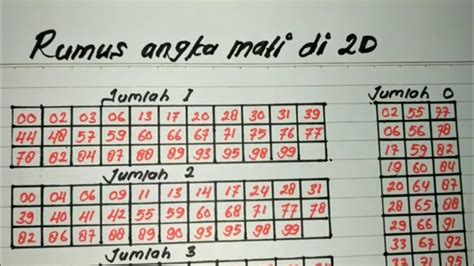 Rumus angka mati di 2D
Jumlah 1
00 02 03 06 13 17 20 28 30 31 39
44 48 57 59 60 66 67 71 75 76 77
78 82 84 87 88 89 93 95 98 99
Jumlah 2
00 04 06 09 11 13 14 17 24 28 31
39 40 41 42 55 59 60 68 71 77 78
82 86 87 88 89 90 93 95 98 99
Jumlah 3
Jumlah 0
02 55 77
06 56 78
17 59 82
19 60 84
20 64 87
28 65 88
29 66 91
33 67 92